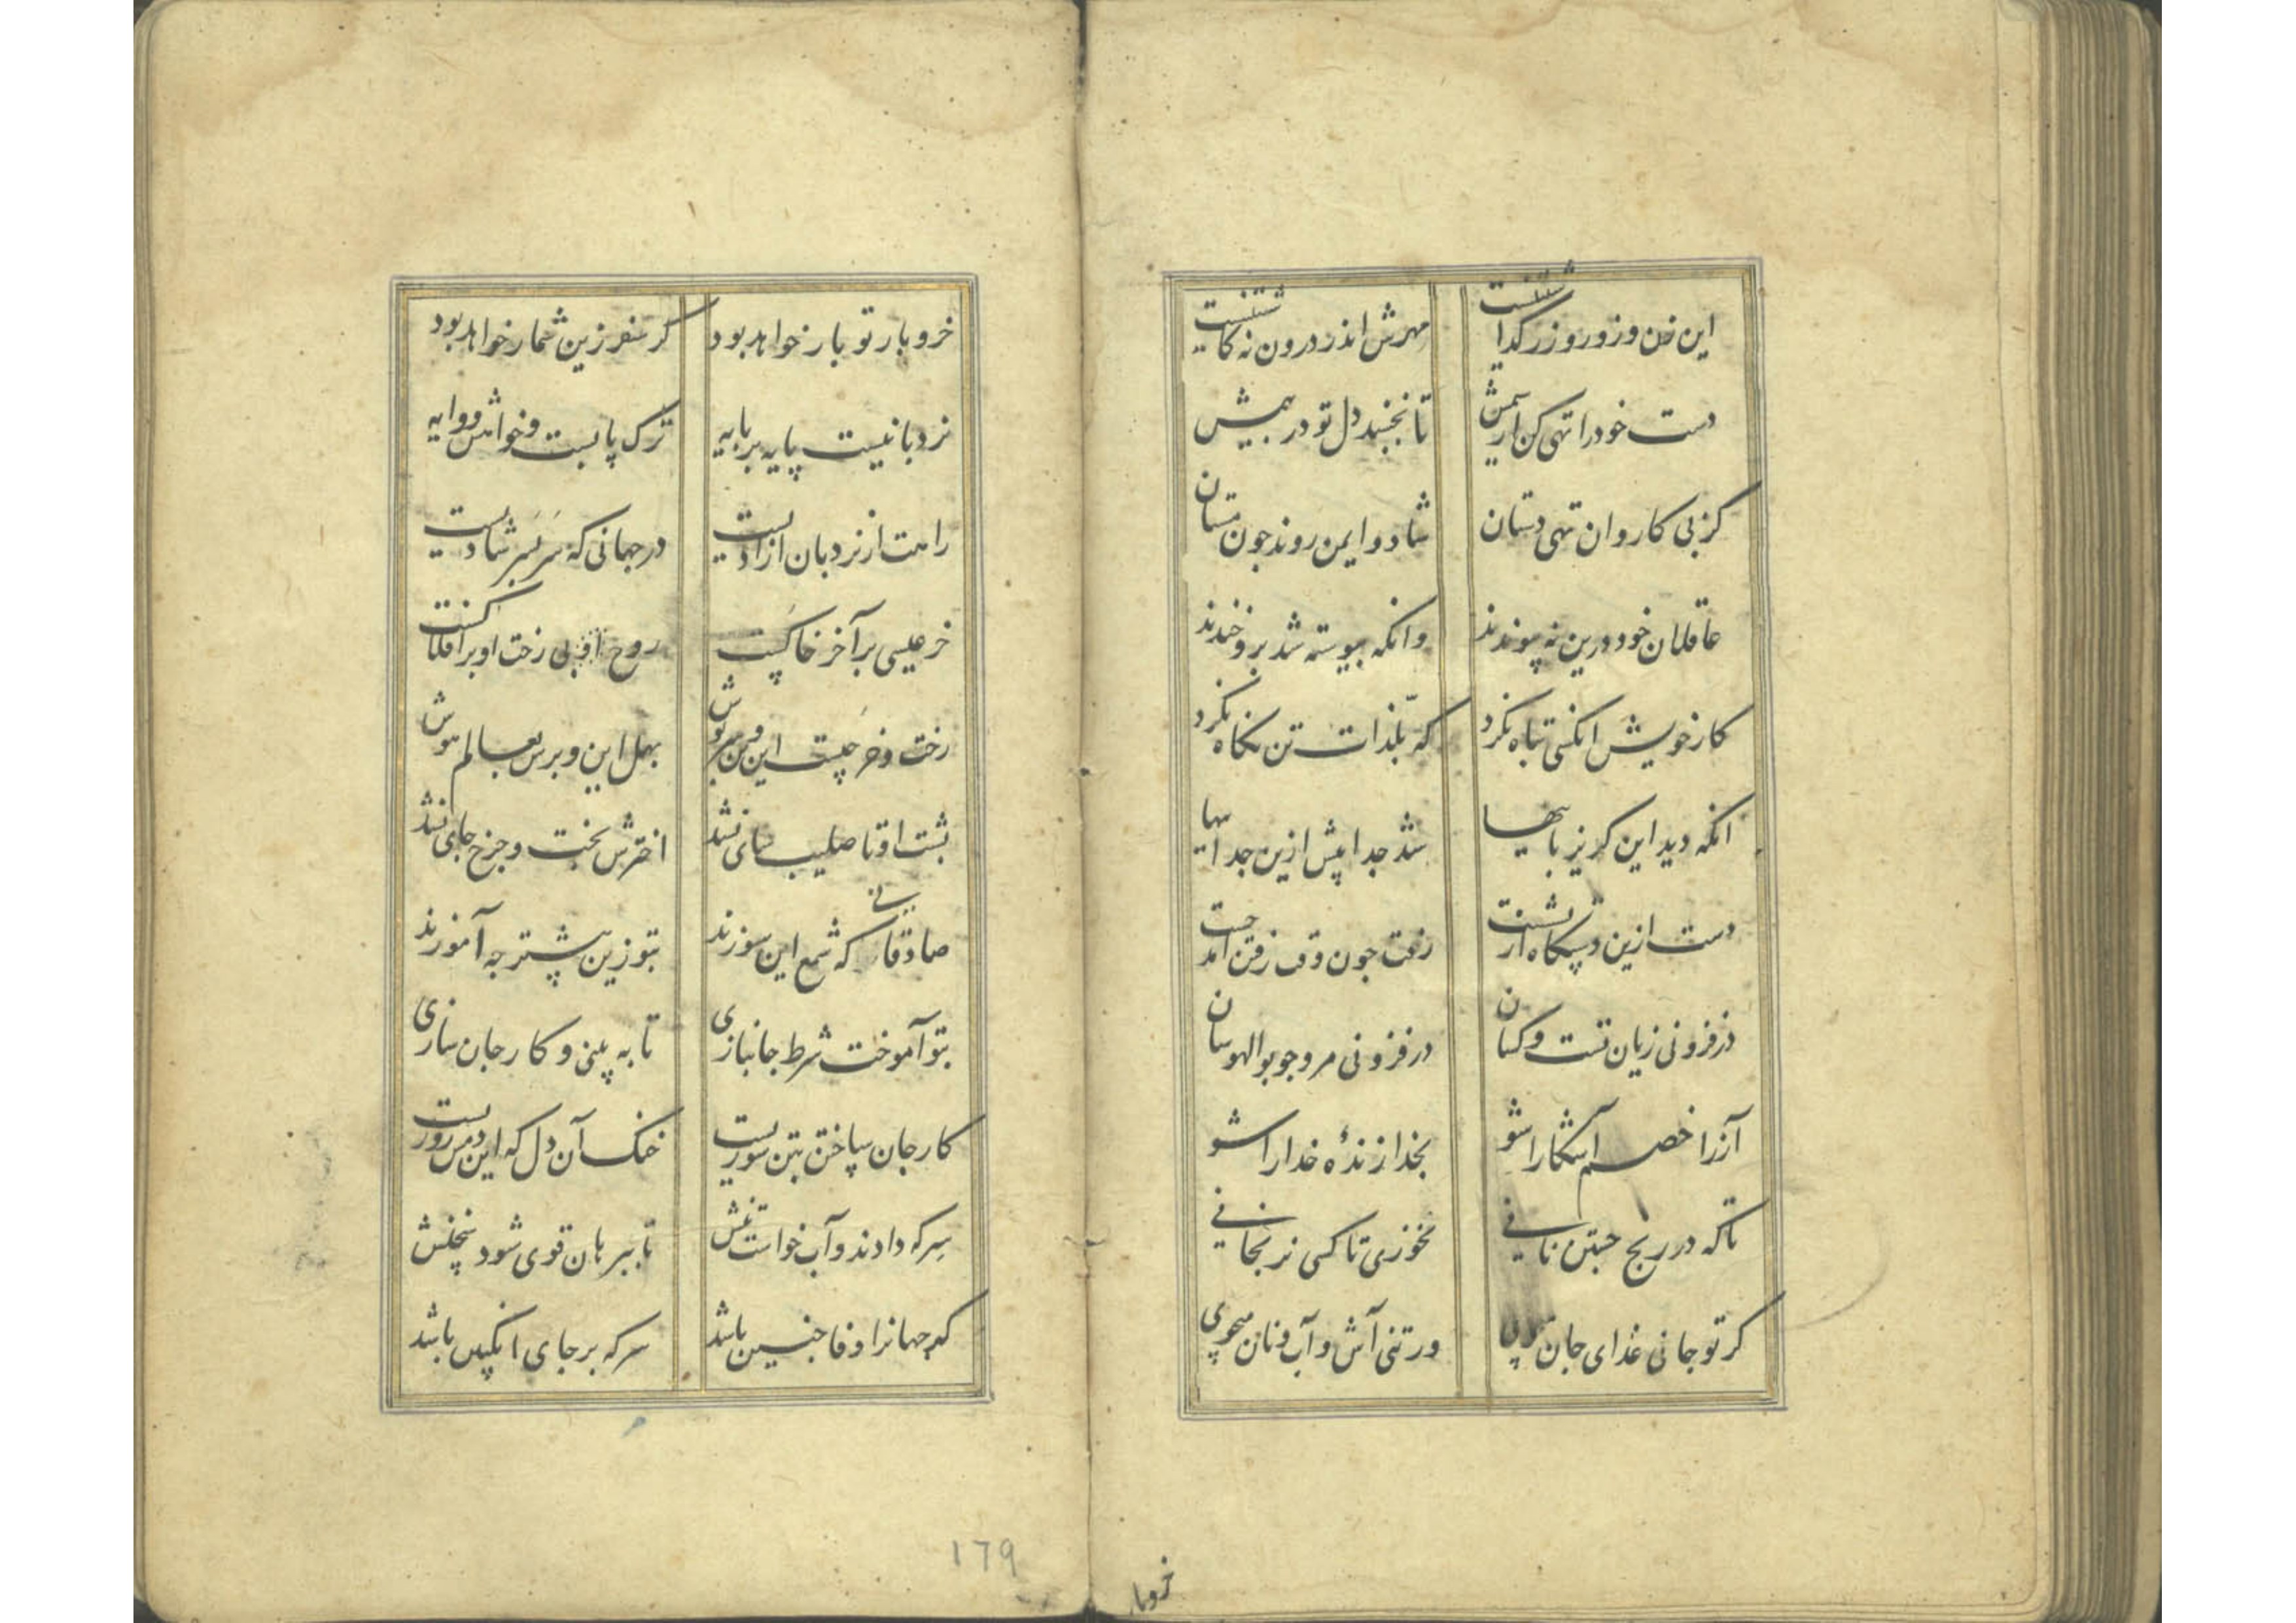 این زن و زور و زر گدا شتنست
مهرش اندر درون نه کاشتنست
دست خود را تهی کن از سیمش
تا نجنبد دل تو در بیمش
کز پی کاروان تهی دستان
شاد و ایمن روند چون مستان
عاقلان خود درین نه پیوندند
وانکه پیوسته شد برو خندند
کار خویش انکسی تباه نکرد
که بلذات تن نکاه نکرد
انکه دید این کریز پاییها
شد جدا پیش ازین جداییها
دست ازین دستکاه
رفت چون وقت رفتن آمد جست
در فزونی زیان تست و کسان
در فزونی مرو چو بوالهوسان
آز را خصم آشکارا شو
بخدا زندهٔ خدا را شو
تا که در رنج جستن نانی
نخوری تا کسی نرنجانی
کر تو جانی غذای جان
ور تنی آش و آب و نان میجوی
خروبار
خر و بار تو بار خواهد بود
کر سفر زین شمار خواهد بود
نردبانیست پایه بر پایه
ترک پابست و خواهش و وایه
راهت از نردبان آزادیست
در جهانی که سر بسر شادیست
خر عیسی بر آخر خاکست
روح او بی رخت او بر افلاکست
رخت و خر چیست این و من بر توش
بهل این و برس بعالم هوش
پشت او تا صلیب سای نشد
اخترش تخت و چرخ جای نشد
صادقانی که شمع این سوزند
بتو زین پیشتر چه آموزند
بتو آموخت شرط جانبازی
تا به بینی و کار جان سازی
کار جان ساختن بتن سوزیست
خنک آن دل که این دمش روزیست
سرکه دادند و آب خواست تنش
تا ببرهان قوی شود سخنش
که جهانرا وفا چنین باشد
سرکه بر جای انکبین باشد
179